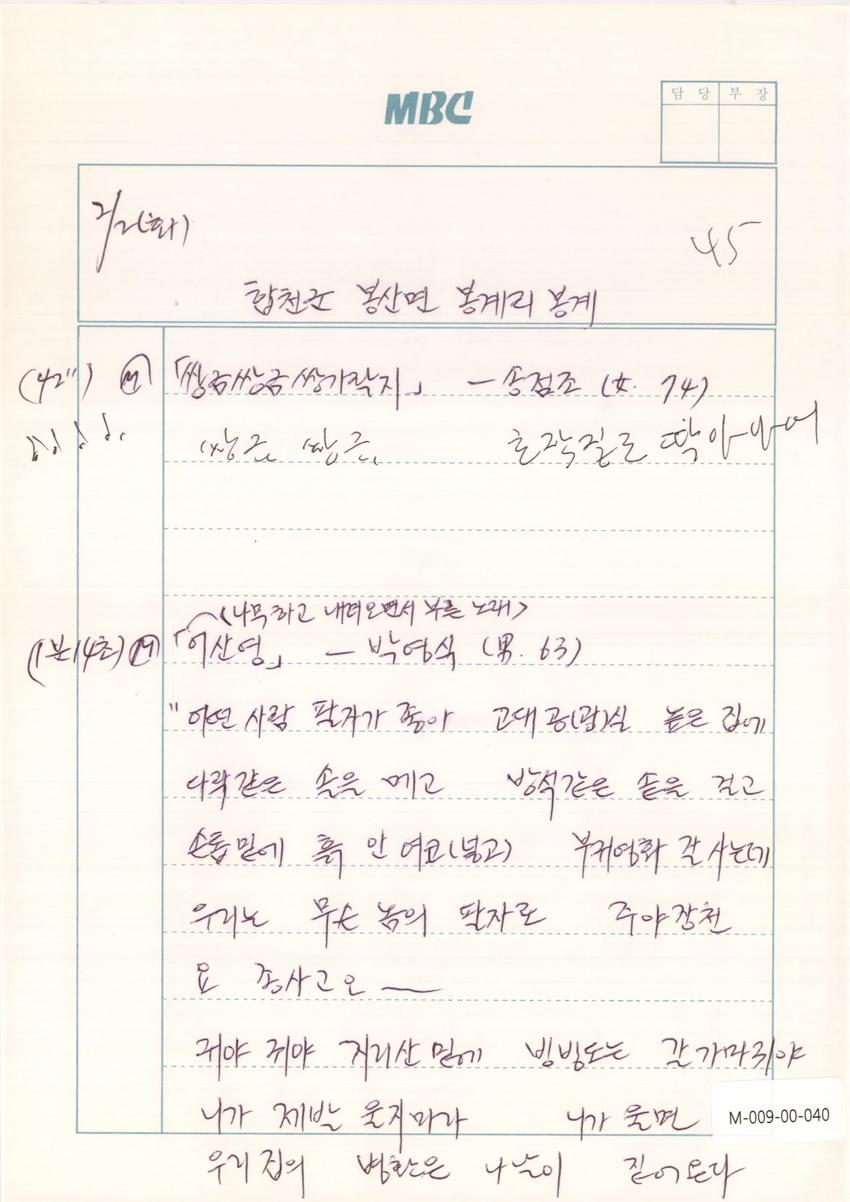 MBC
담당 부장
2/2(화)
45
합천군 봉산면 봉계리 봉계
(42") M 「쌍금쌍금쌍가락지」 - 송점조 (女. 74)
쌍금 쌍금 호작질로 딱아내어
(나무하고 내려오면서 부른 노래)
(1분14초) M 「어산영」 - 박영식 (男. 63)
"어떤 사람 팔자가 좋아 고대광(광)실 높은 집에
다락같은 솔을 메고 방석같은 솥을 걸고
손톱밑에 흙 안 여코(넣고) 부귀영화 잘 사는데
우리는 무슨 놈의 팔자로 주야장천
요 종사고오 ―
귀야 귀야 지리산 밑에 빙빙도는 갈가마귀야
니가 제발 울지마라 니가 울면
우리 집의 병환은 나날이 짙어온다
M-009-00-040